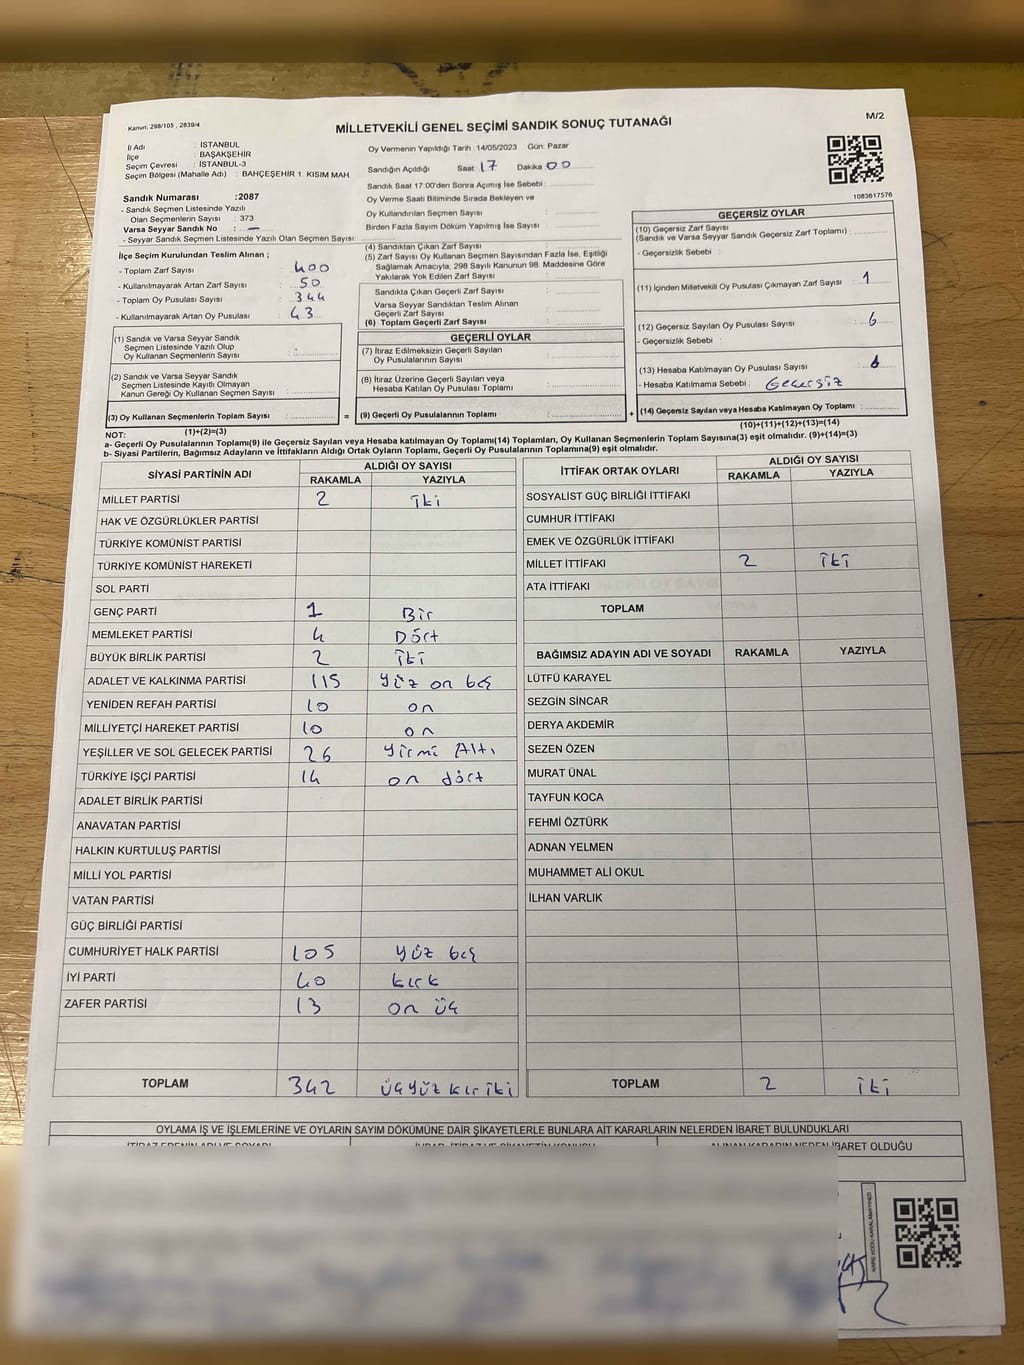 Kanun: 298/105 , 2839/4
MİLLETVEKİLİ GENEL SEÇİMİ SANDIK SONUÇ TUTANAĞI
M/2
İl Adı : İSTANBUL
İlçe : BAŞAKŞEHİR
Seçim Çevresi : İSTANBUL-3
Seçim Bölgesi (Mahalle Adı) : BAHÇEŞEHİR 1. KISIM MAH.
Sandık Numarası :2087
- Sandık Seçmen Listesinde Yazılı
Olan Seçmenlerin Sayısı : 373
Varsa Seyyar Sandık No : —
- Seyyar Sandık Seçmen Listesinde Yazılı Olan Seçmen Sayısı:
İlçe Seçim Kurulundan Teslim Alınan ;
- Toplam Zarf Sayısı : 400
- Kullanılmayarak Artan Zarf Sayısı : 50
- Toplam Oy Pusulası Sayısı : 344
- Kullanılmayarak Artan Oy Pusulası : 43
(1) Sandık ve Varsa Seyyar Sandık
Seçmen Listesinde Yazılı Olup
Oy Kullanan Seçmenlerin Sayısı :
(2) Sandık ve Varsa Seyyar Sandık
Seçmen Listesinde Kayıtlı Olmayan
Kanun Gereği Oy Kullanan Seçmen Sayısı :
(3) Oy Kullanan Seçmenlerin Toplam Sayısı :
(1)+(2)=(3)
Oy Vermenin Yapıldığı Tarih : 14/05/2023 Gün: Pazar
Sandığın Açıldığı Saat: 17 Dakika 00
Sandık Saat 17.00'den Sonra Açımış İse Sebebi :
Oy Verme Saati Bitiminde Sırada Bekleyen ve
Oy Kullandırılan Seçmen Sayısı :
Birden Fazla Sayım Döküm Yapılmış İse Sayısı :
(4) Sandıktan Çıkan Zarf Sayısı :
(5) Zarf Sayısı Oy Kullanan Seçmen Sayısından Fazla İse, Eşitliği
Sağlamak Amacıyla, 298 Sayılı Kanunun 98. Maddesine Göre
Yakılarak Yok Edilen Zarf Sayısı :
Sandıkta Çıkan Geçerli Zarf Sayısı :
Varsa Seyyar Sandıktan Teslim Alınan
Geçerli Zarf Sayısı :
(6) Toplam Geçerli Zarf Sayısı :
GEÇERLİ OYLAR
(7) İtiraz Edilmeksizin Geçerli Sayılan
Oy Pusulalarının Sayısı :
(8) İtiraz Üzerine Geçerli Sayılan veya
Hesaba Katılan Oy Pusulası Toplamı :
= (9) Geçerli Oy Pusulalarının Toplamı :
1083617576
GEÇERSİZ OYLAR
(10) Geçersiz Zarf Sayısı
(Sandık ve Varsa Seyyar Sandık Geçersiz Zarf Toplamı) :
- Geçersizlik Sebebi :
(11) İçinden Milletvekili Oy Pusulası Çıkmayan Zarf Sayısı : 1
(12) Geçersiz Sayılan Oy Pusulası Sayısı : 6
- Geçersizlik Sebebi :
(13) Hesaba Katılmayan Oy Pusulası Sayısı :
- Hesaba Katılmama Sebebi : Geçersiz
+ (14) Geçersiz Sayılan veya Hesaba Katılmayan Oy Toplamı :
(10)+(11)+(12)+(13)=(14)
NOT:
a- Geçerli Oy Pusulalarının Toplamı(9) ile Geçersiz Sayılan veya Hesaba katılmayan Oy Toplamı(14) Toplamları, Oy Kullanan Seçmenlerin Toplam Sayısına(3) eşit olmalıdır. (9)+(14)=(3)
b- Siyasi Partilerin, Bağımsız Adayların ve İttifakların Aldığı Ortak Oyların Toplamı, Geçerli Oy Pusulalarının Toplamına(9) eşit olmalıdır.
SİYASİ PARTİNİN ADI ALDIĞI OY SAYISI
RAKAMLA YAZIYLA
MİLLET PARTİSİ 2 iki
HAK VE ÖZGÜRLÜKLER PARTİSİ
TÜRKİYE KOMÜNİST PARTİSİ
TÜRKİYE KOMÜNİST HAREKETİ
SOL PARTİ
GENÇ PARTİ 1 Bir
MEMLEKET PARTİSİ 4 Dört
BÜYÜK BİRLİK PARTİSİ 2 iki
ADALET VE KALKINMA PARTİSİ 115 Yüz on beş
YENİDEN REFAH PARTİSİ 10 on
MİLLİYETÇİ HAREKET PARTİSİ 10 on
YEŞİLLER VE SOL GELECEK PARTİSİ 26 Yirmi Altı
TÜRKİYE İŞÇİ PARTİSİ 14 on dört
ADALET BİRLİK PARTİSİ
ANAVATAN PARTİSİ
HALKIN KURTULUŞ PARTİSİ
MİLLİ YOL PARTİSİ
VATAN PARTİSİ
GÜÇ BİRLİĞİ PARTİSİ
CUMHURİYET HALK PARTİSİ 105 Yüz beş
İYİ PARTİ 40 kırk
ZAFER PARTİSİ 13 on üç
TOPLAM 342 üçyüz kır iki
İTTİFAK ORTAK OYLARI ALDIĞI OY SAYISI
RAKAMLA YAZIYLA
SOSYALİST GÜÇ BİRLİĞİ İTTİFAKI
CUMHUR İTTİFAKI
EMEK VE ÖZGÜRLÜK İTTİFAKI
MİLLET İTTİFAKI 2 iki
ATA İTTİFAKI
TOPLAM
BAĞIMSIZ ADAYIN ADI VE SOYADI RAKAMLA YAZIYLA
LÜTFÜ KARAYEL
SEZGİN SİNCAR
DERYA AKDEMİR
SEZEN ÖZEN
MURAT ÜNAL
TAYFUN KOCA
FEHMİ ÖZTÜRK
ADNAN YELMEN
MUHAMMET ALİ OKUL
İLHAN VARLIK
TOPLAM 2 iki
OYLAMA İŞ VE İŞLEMLERİNE VE OYLARIN SAYIM DÖKÜMÜNE DAİR ŞİKAYETLERLE BUNLARA AİT KARARLARIN NELERDEN İBARET BULUNDUKLARI
İTİRAZ EDENİN ADI VE SOYADI ALINAN KARARIN NEDEN İBARET OLDUĞU
KARE KODU KARALAMAYINIZ!